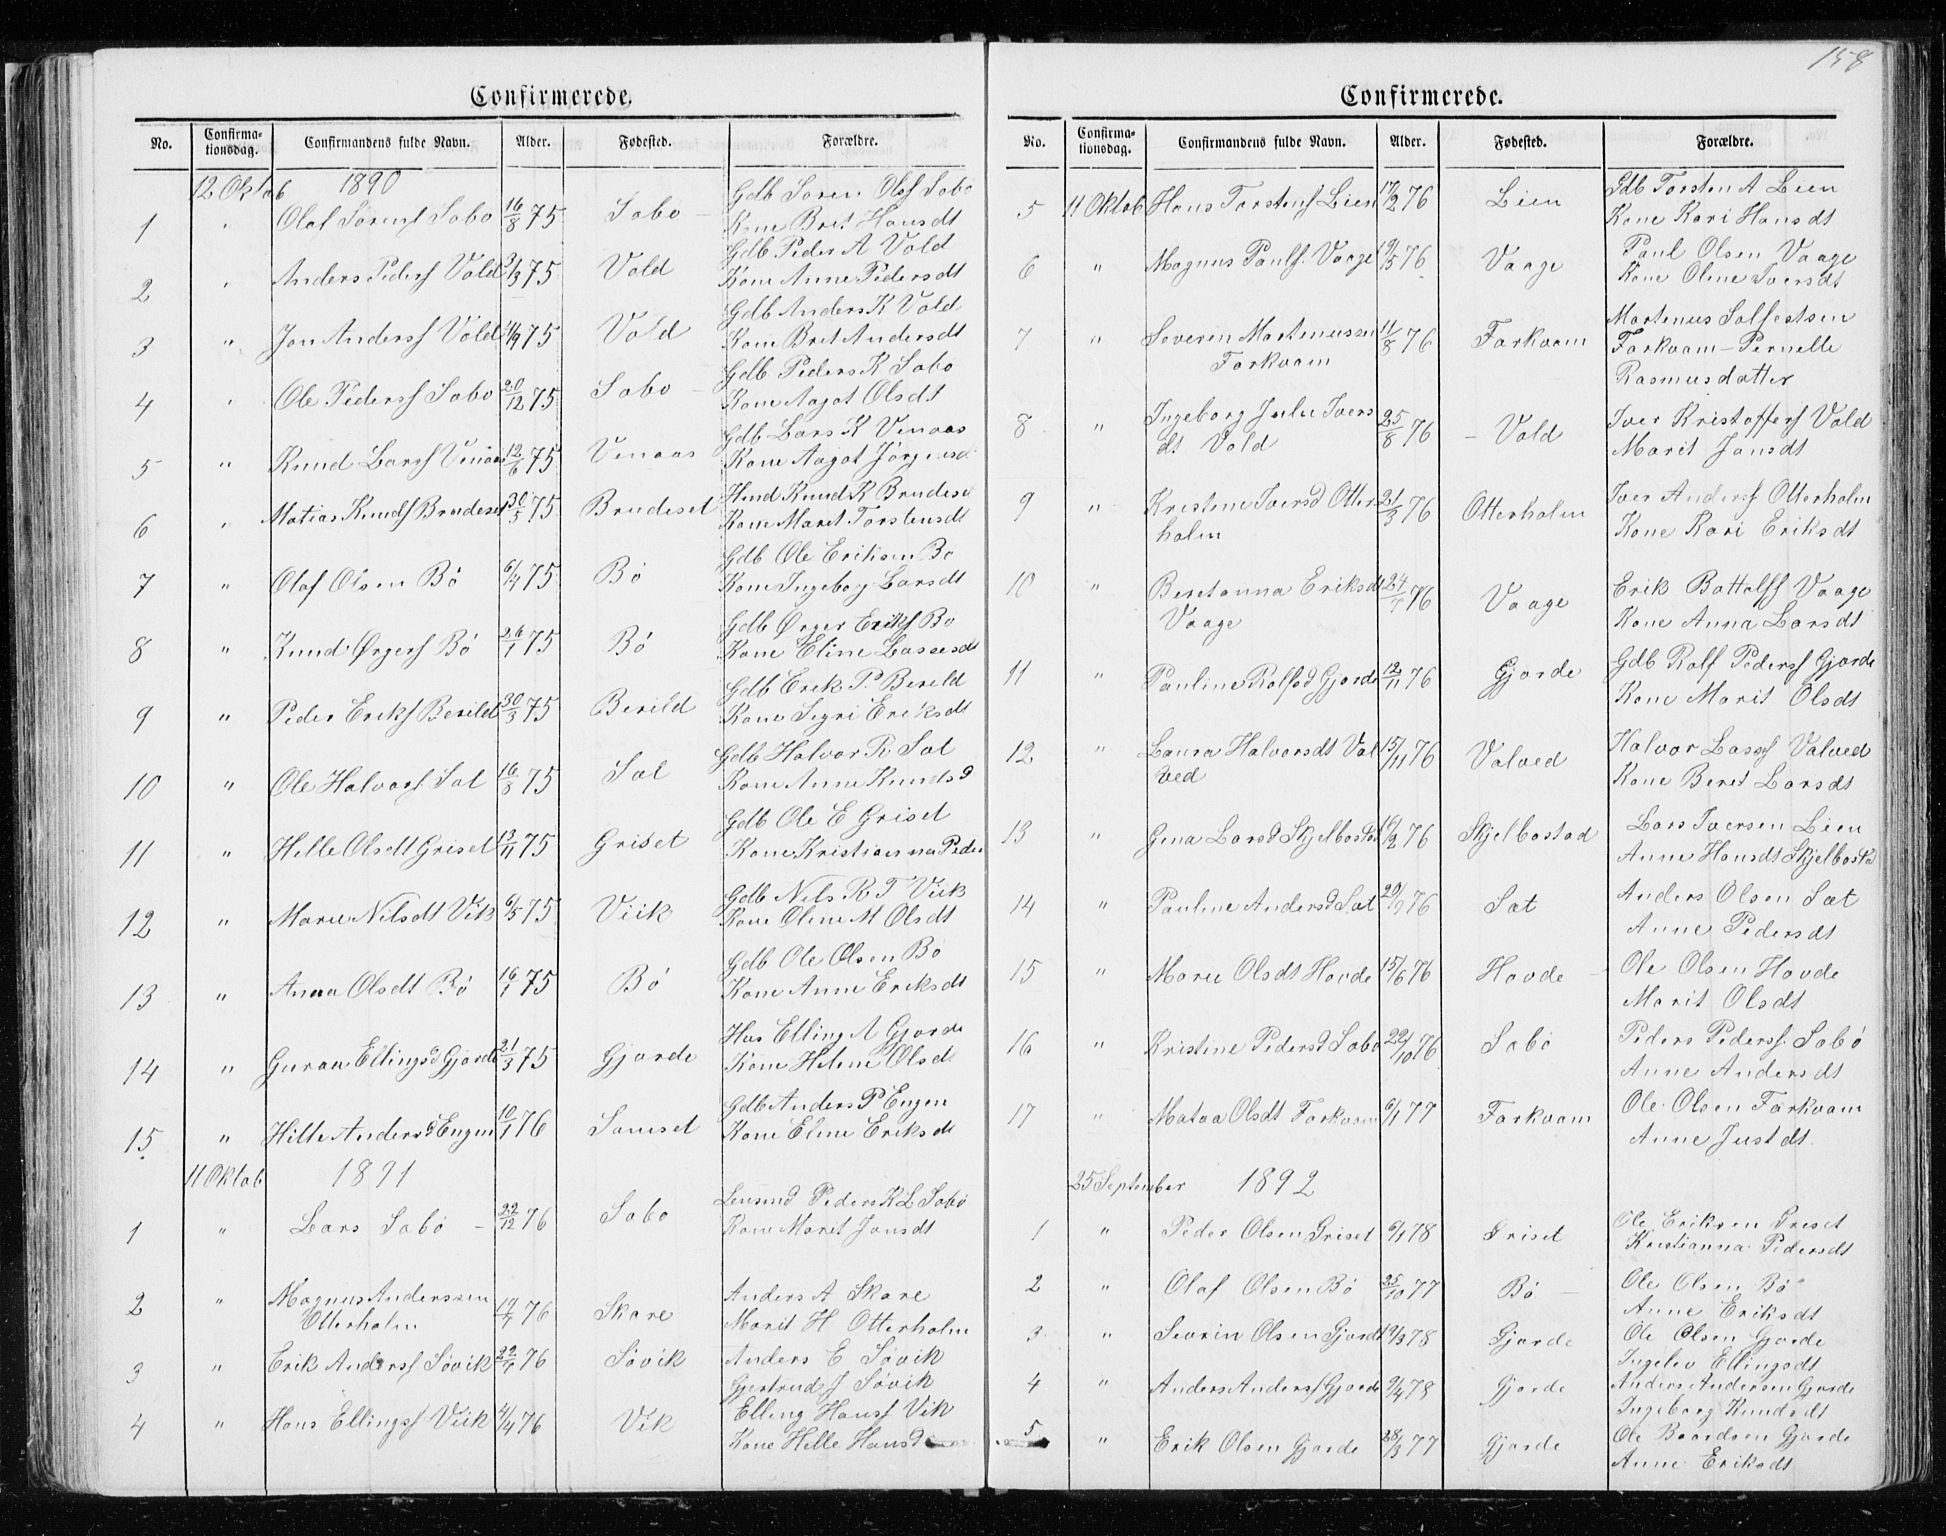 158
Confirmerede.
No. Confirmationsdag. Confirmandens fulde Navn. Alder. Fødested. Forældre.
12 Oktob 1890
1 " Olaf Sørens Sabø 16/8 75 Sabø Gdb Søren Ols Sabø
Kone Bret Hansdt
2 " Anders Peders Vold 75 Vold Gdb Peder A Vold
Kone Anne Pedersdt
3 " Jon Anders Vold 75 Vold Gdb Anders K Vold
Kone Bret Andersdt
4 " Ole Peders Sabø 20/12 75 Sabø Gdb Peders K Sabø
Kone Aagot Olsdt
5 " Knud Lars Venaas 12/6 75 Venaas Gdb Lars K Venaas
Kone Aagot Jørgensd
6 " Matias Knuds Brudeset 30/5 75 Brudeset Husd Knud K Brudese
Kone Maret Torstensdt
7 " Olaf Olsen Bø 6/4 75 Bø Gdb Ole Eriksen Bø
Kone Ingeborg Larsdt
8 " Knud Ørgers Bø 26/1 75 Bø Gdb Ørger Eriks Bø
Kone Eline Lassesdt
9 " Peder Eriks Berild 30/3 75 Berild Gdb Erik P. Berild
Kone Segri Eriksdt
10 " Ole Halvors. Sæt 16/8 75 Sæt Gdb Halvor R Sæt
Kone Anne Knudsd
11 " Hille Olsdt Griset 13/11 75 Griset Gdb Ole E Griset
Kone Kristianna Peder
12 " Marie Nilsdt Vik 6/5 75 Viik Gdb Nils R T Viik
Kone Oline M Olsdt
13 " Anna Olsdt Bø 16/1 75 Bø Gdb Ole Olsen Bø
Kone Anne Eriksdt
14 " Guran Ellingsd Gjørde 21/3 75 Gjørde Hus Elling A Gjørde
Kone Helene Olsd
15 " Hille Andersd Engen 10/1 76 Gdb Anders P Engen
Kone Eline Eriksdt
11 Oktob 1891
1 " Lars Sabø 22/12 76 Sabø Lensmd Peder K L Sabø
Kone Marit Jonsdt
2 " Magnus Anderssen
Otterholm 76 Skare Anders A Skare
Marit H Otterholm
3 " Erik Anders Søvik 76 Søvik Anders E Søvik
Gjertrud J Søvik
4 " Hans Ellings Viik 4/4 76 Vik Elling Hans Vik
Kone Hille Hansd
Confirmerede.
No. Confirmationsdag. Confirmandens fulde Navn. Alder. Fødested. Forældre.
5 11 Oktob Hans Torstens Lien 17/2 76 Lien Gdb Torsten A Lien
Kone Kari Hansdt
6 " Magnus Pauls. Vaage 19/5 76 Vaage Paul Olsen Vaage
Kone Oline Iversdt
7 " Severin Martinussen
Farkvam 11/8 76 Farkvam Martinus Solfestsen
Farkvam - Pernelle
Rasmusdatter
8 " Ingeborg Julie Ivers
dt Vold 25/8 76 Vold Iver Kristoffers Vold
Marit Jonsdt
9 " Kristine Iversd Otter
holm 21/3 76 Otterholm Iver Anders Otterholm
Kone Kari Eriksdt
10 " Beretanna Eriksdt
Vaage 76 Vaage Erik Bottolfs Vaage
Kone Anna Larsdt
11 " Pauline Rolfsd Gjørde 12/11 76 Gjørde Gdb Rolf Peders Gjørde
Kone Marit Olsdt
12 " Laura Halvorsdt Val
ved 15/11 76 Valved Halvor Lass Valved
Kone Beret Larsdt
13 " Gina Larsd Skjelbostad 16/2 76 Skjelbostad Lars Iversen Lien
Anne Hansdt Skjelbostd
14 " Pauline Andersd Sæt 20/9 76 Sæt Anders Olsen Sæt
Anne Pedersdt
15 " Marie Olsdt Hovde 15/6 76 Hovde Ole Olsen Hovde
Marit Olsdt
16 " Kristine Pedersd Sabø 22/10 76 Sabø Peders Peders. Sabø
Anne Andersdt
17 " Mataa Olsdt Farkvam 6/1 77 Farkvam Ole Olsen Farkvam
Anne Justdt.
25 September 1892
1 " Peder Olsen Griset 6/1 78 Griset Ole Eriksen Griset
Kristianna Pedersdt
2 " Olaf Olsen Bø 25/10 77 Bø Ole Olsen Bø
Anne Eriksdt
3 " Sevrin Olsen Gjørde 19/3 78 Gjørde Ole Olsen Gjørde
Ingelev Ellingsdt
4 " Anders Anders Gjørde 9/4 78 Gjørde Anders Andersen Gjørde
Ingeborg Knudsdt
5 " Erik Olsen Gjørde 28/3 77 Gjørde Ole Baardsen Gjørde
Anne Eriksdt